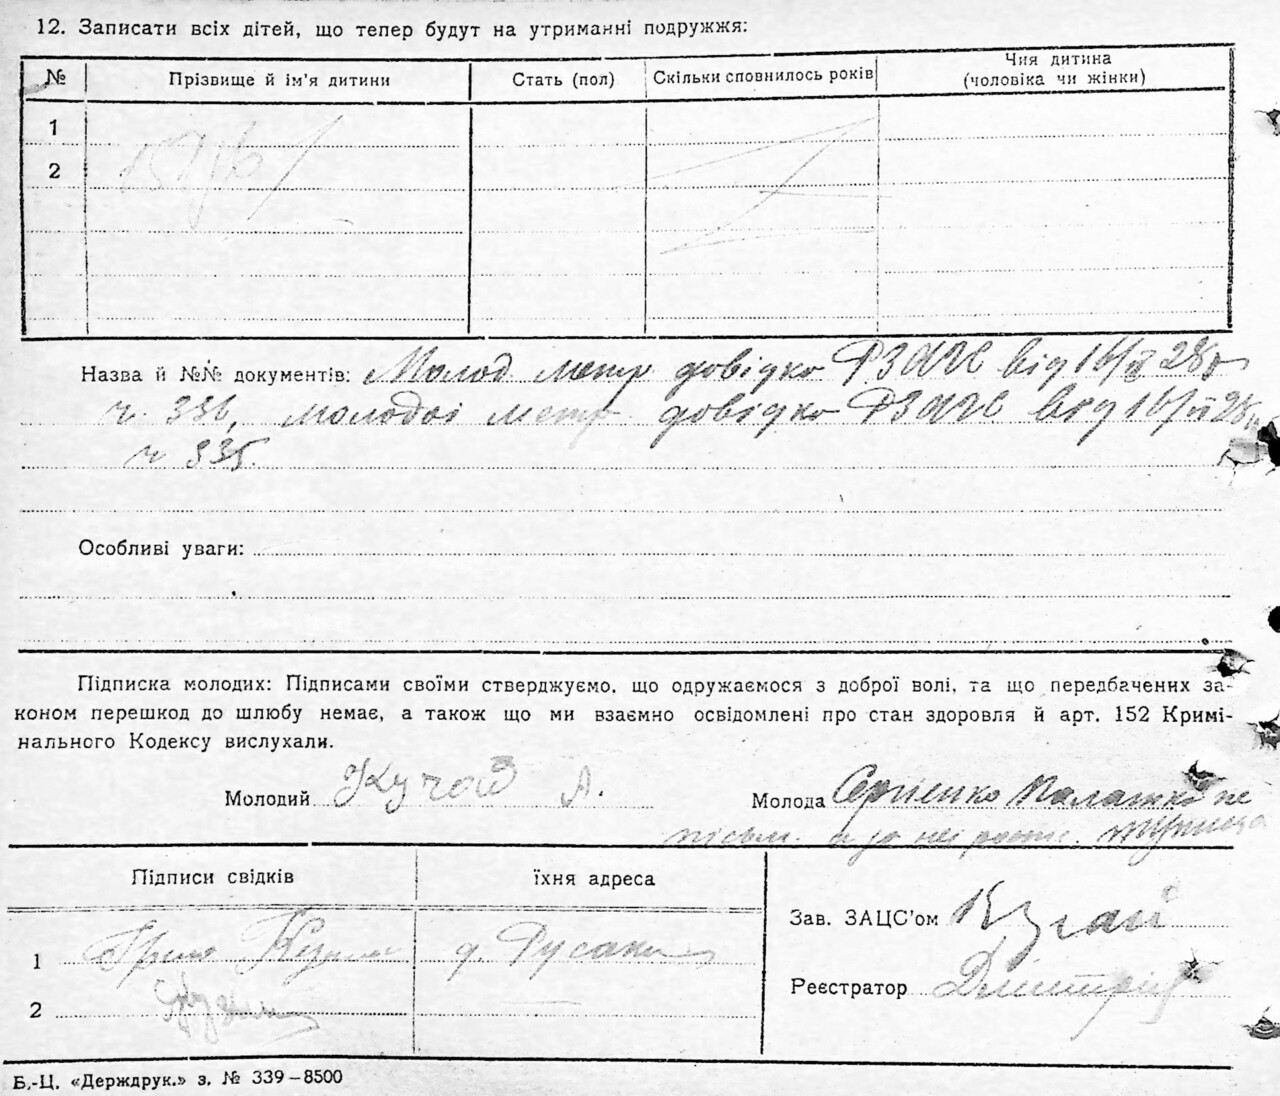 12. Записати всіх дітей, що тепер будут на утриманні подружжя:
№ Прізвище й ім'я дитини Стать (пол) Скільки сповнилось років Чия дитина
(чоловіка чи жінки)
1
2
Назва й №№ документів: Молод метр довідко РЗАГС від 16/II 28р
ч. 336, молодої метр довідко РЗАГС від 16/II 28р
ч 335.
Особливі уваги:
Підписка молодих: Підписами своїми стверджуємо. що одружаємося з доброї волі, та що передбачених за-
коном перешкод до шлюбу немає, а також що ми взаємно освідомлені про стан здоровля й арт. 152 Кримі-
нального Кодексу вислухали.
Молодий А. Молода Сергієнко Палажка не
пісьм. а за неї
Підписи свідків їхня адреса
Зав. ЗАЦС'ом
1
Реєстратор
2
Б.-Ц. «Держдрук.» з. № 339–8500